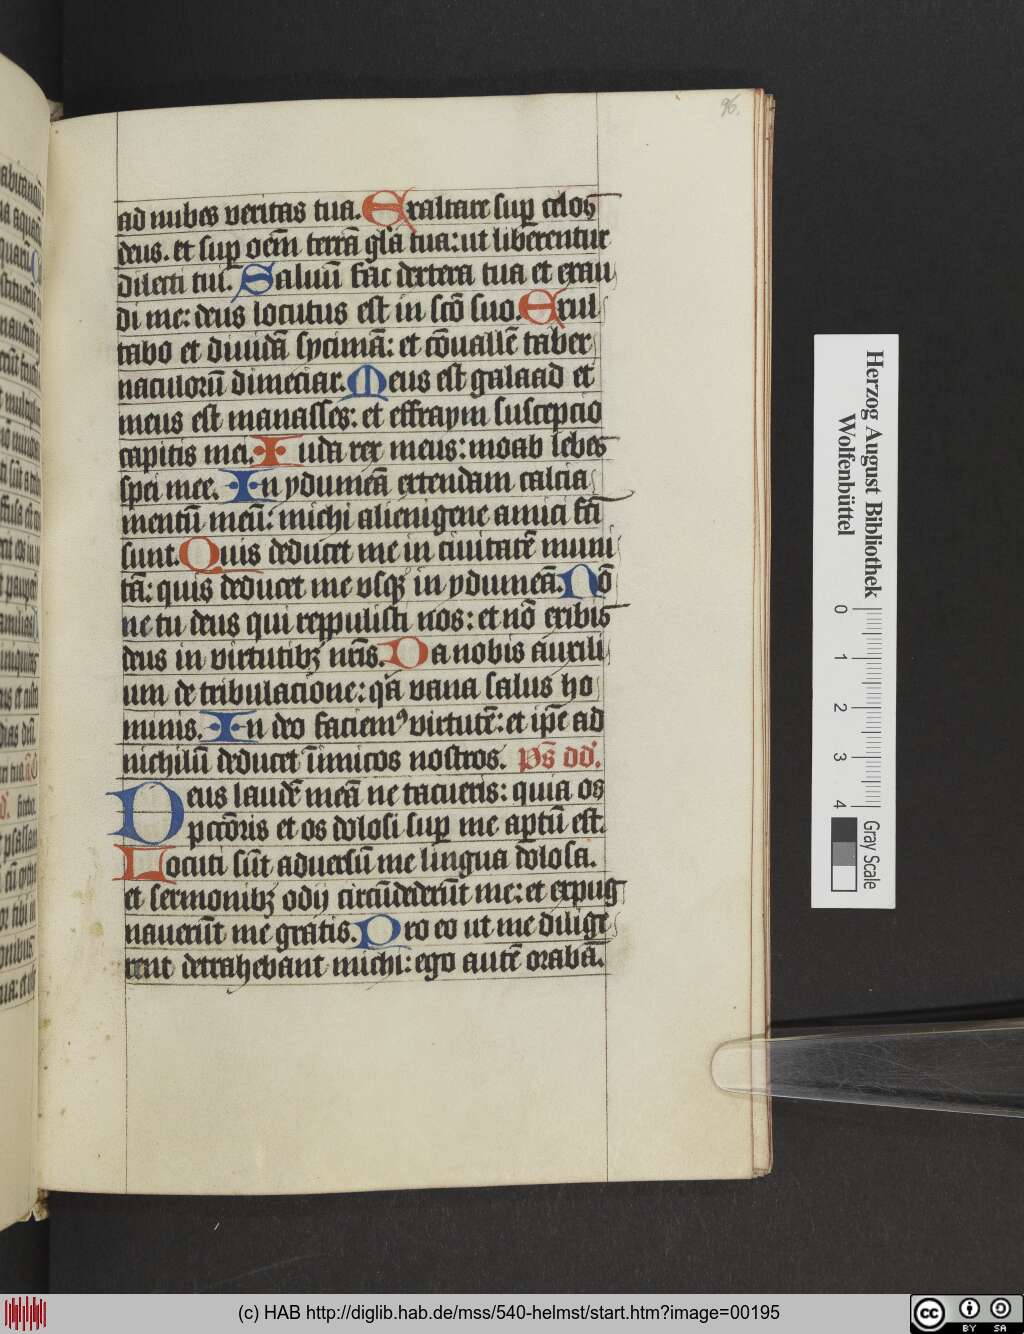 96.
ad nubes veritas tua. Exaltare sup celos
deus. et sup oēm terrā glā tua: ut liberentur
dilecti tui. Saluū fac dextera tua et exau
di me: deus locutus est in scō suo. Exul
tabo et diuidā sycimā: et cōuallē taber
naculorū dimeciar. Meus est galaad et
meus est manasses: et effraym suscepcio
capitis mei. Iuda rex meus: moab lebes
spei mee. In ydumeā extendam calcia
mentū meū: michi alienigene amici fcī
sunt. Quis deducet me in ciuitatē muni
tā: quis deducet me vsqꝫ in ydumeā. Nō
ne tu deus qui reppulisti nos: et nō exibis
deus in virtutibꝫ nrīs. Da nobis auxili
um de tribulacione: qā vana salus ho
minis. In deo faciemꝰ virtutē: et ipē ad
nichilū deducet īimicos nostros. Ps̄ dd'.
Deus laudē meā ne tacueris: quia os
pctōris et os dolosi sup me aptū est.
Locuti sūt aduersū me lingua dolosa.
et sermonibꝫ odij circūdederūt me: et expug
nauerūt me gratis. Pro eo ut me dilige
rent detrahebant michi: ego autē orabā.
Herzog August Bibliothek
Wolfenbüttel
0 1 2 3 4
Gray Scale
(c) HAB http://diglib.hab.de/mss/540-helmst/start.htm?image=00195
cc BY SA